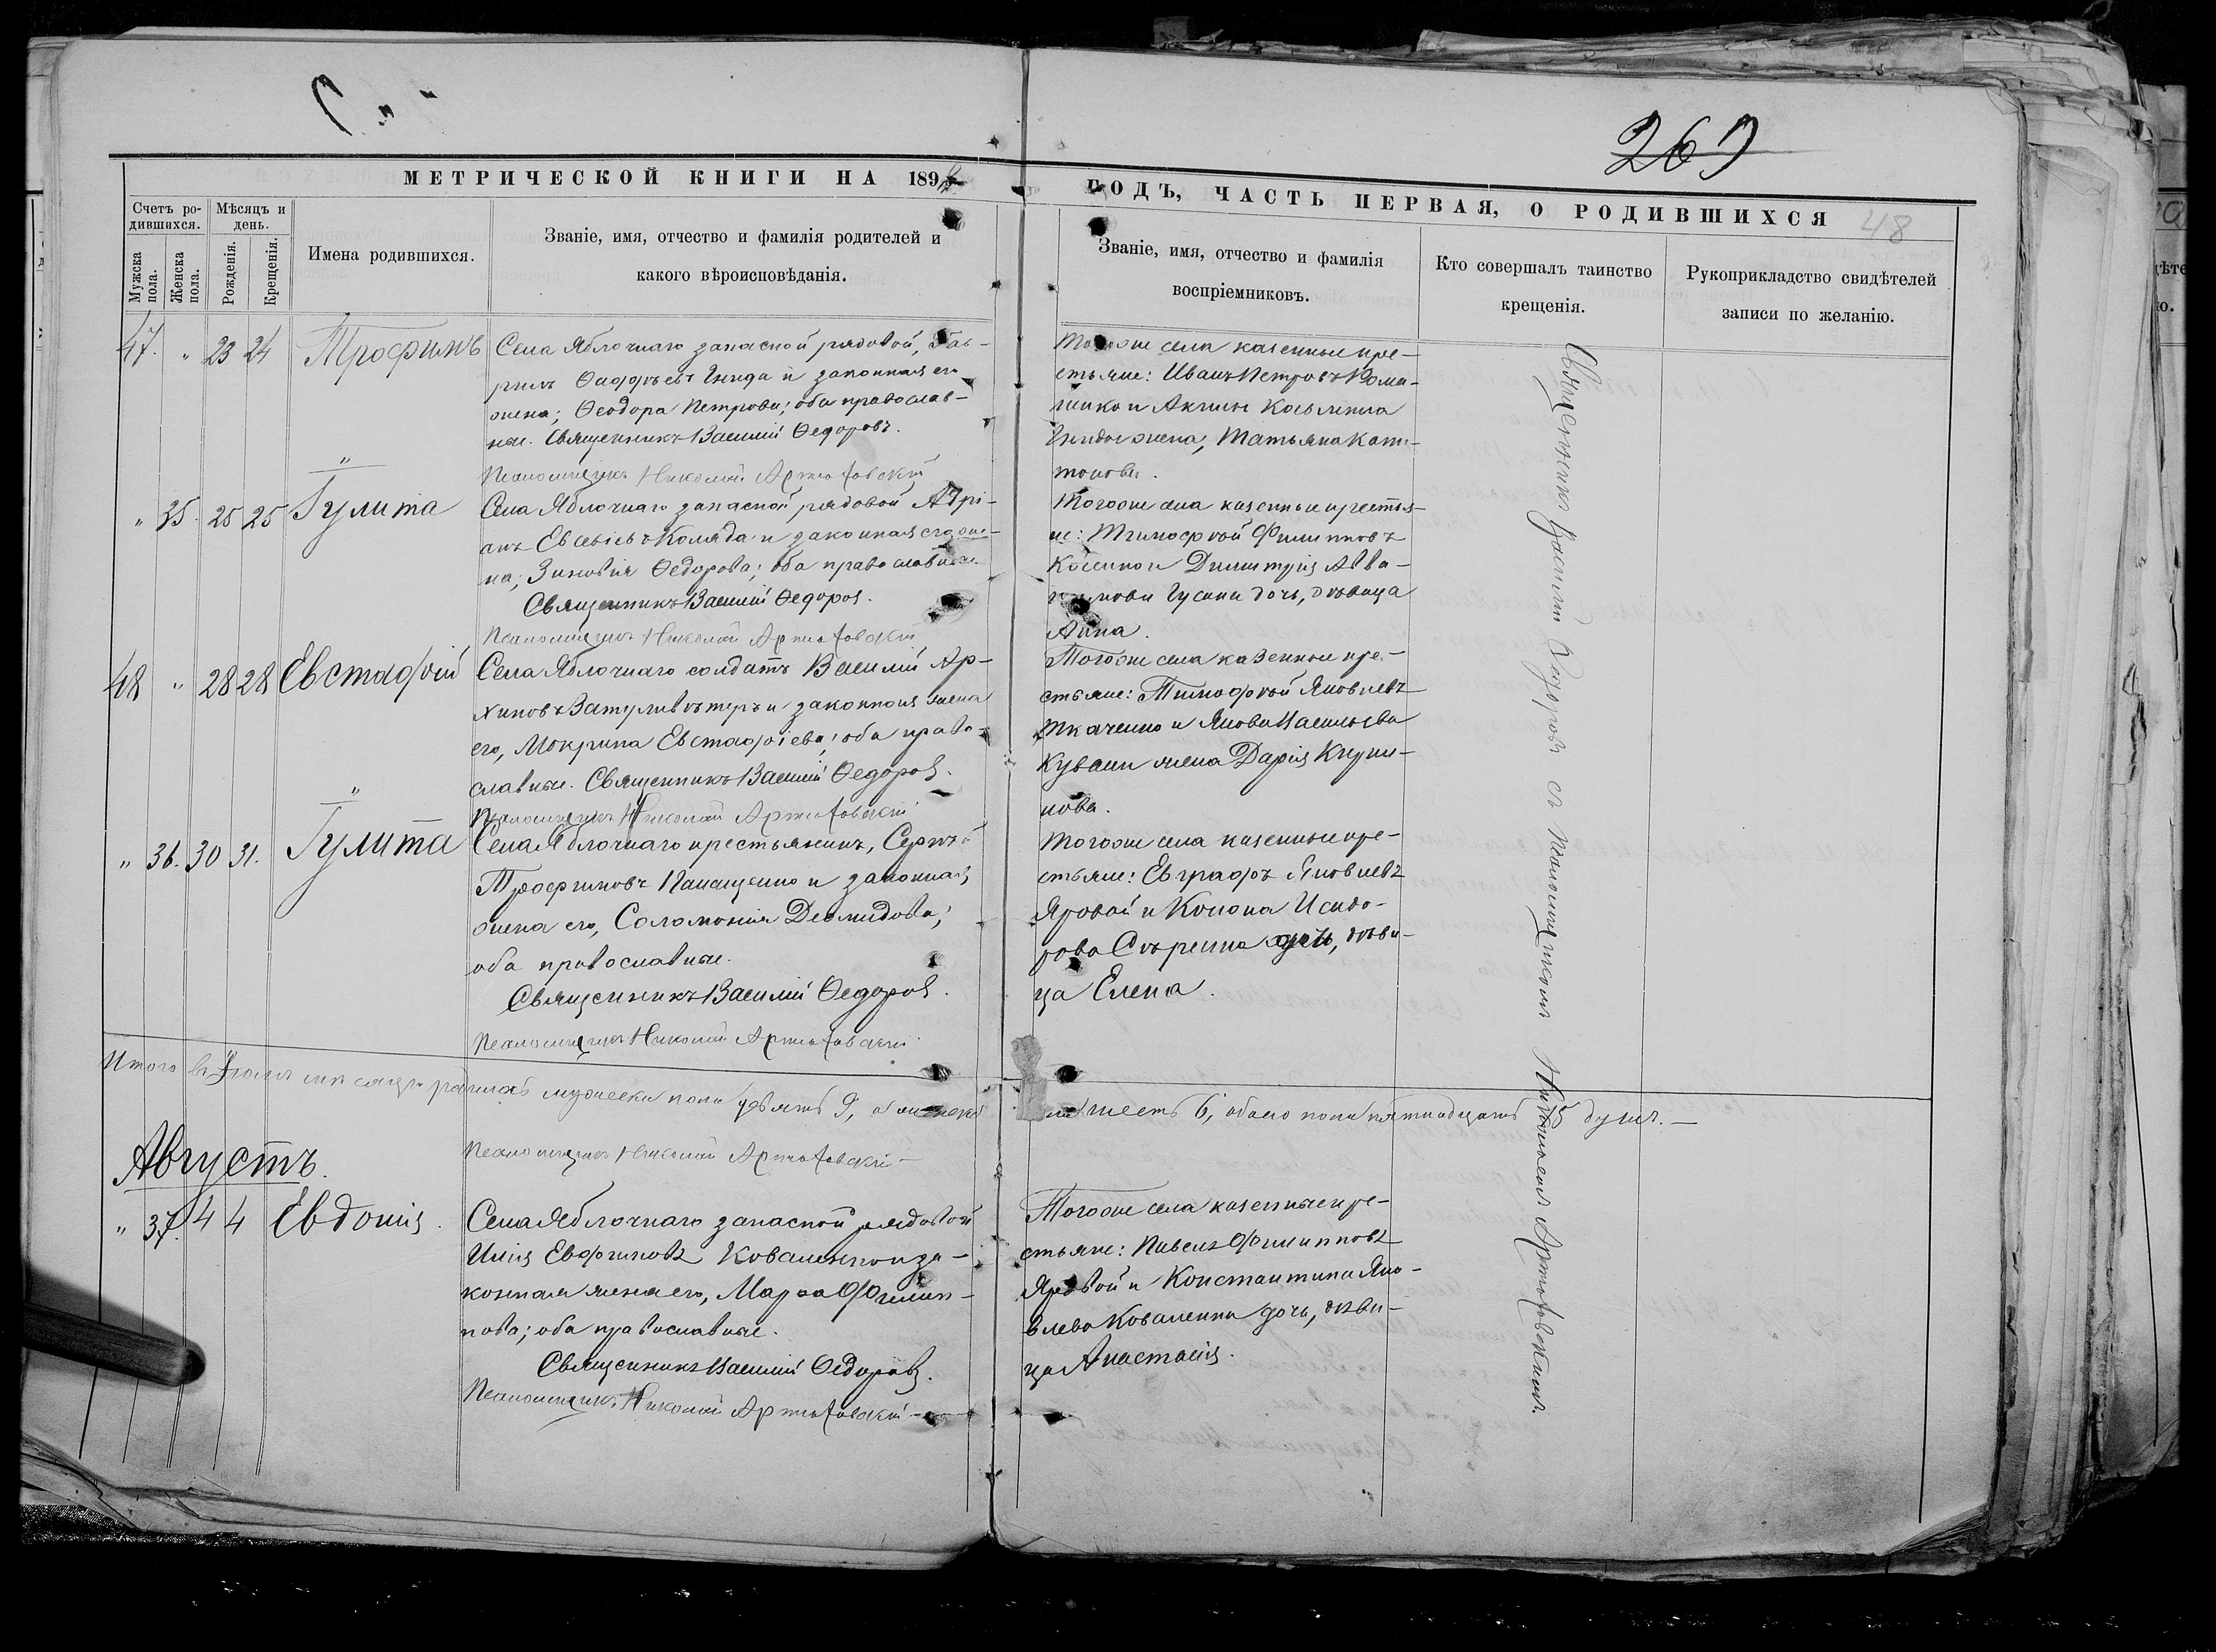 269
48
МЕТРИЧЕСКОЙ КНИГИ НА 189
ГОДЪ, ЧАСТЬ ПЕРВАЯ, О РОДИВШИХСЯ
Счетъ ро-
дившихся.
Мѣсяцъ и
день.
Мужска
пола.
Женска
пола.
Рожденія.
Крещенія.
Имена родившихся.
Званіе, имя, отчество и фамилія родителей и
какого вѣроисповѣданія.
Званіе, имя, отчество и фамилія
воспріемниковъ.
Кто совершалъ таинство
крещенія.
Рукоприкладство свидѣтелей
записи по желанію.
47. " 23 24 Трофимъ
Села Яблочнаго запасной рядовой, Гав-
рилъ Фаддѣевъ Гнида и законная его
жена; Ѳеодора Петрова; оба православ-
ные. Священникъ Василій Ѳедоровъ.
Псаломщикъ Николай Артюховскій
Тогоже села казенные кре-
стьяне: Иванъ Петровъ
и Акима Косьмина
Гниды жена, Татьяна
" 35. 25 25 Гулита
Села Яблочнаго запасной рядовой Адрі-
анъ Евсевіевъ Коляда и законная его же-
на; Зиновія Ѳедорова; оба православные.
Священникъ Василій Ѳедоровъ.
Псаломщикъ Николай Артюховскій
Тогоже села казенные крестья-
не: Тимоѳей Филипповъ
и Димитрія Авва-
кумова Гусака дочь, дѣвица
Анна.
48 " 28 28 Евстафій
Села Яблочнаго солдатъ Василій Ар-
хиповъ Затуливѣтеръ и законная жена
его, Мокрина Евстафіева; оба право-
славные. Священникъ Василій Ѳедоровъ.
Псаломщикъ Николай Артюховскій
Тогоже села казенные кре-
стьяне: Тимофей Яковлевъ
Ткаченко и Якова Васильева
жена Дарія
" 36. 30 31. Гулита
Села Яблочнаго крестьянинъ, Сергѣй
Трофимовъ Панащенко и законная
жена его, Соломонія Деомидова;
оба православные.
Священникъ Василій Ѳедоровъ.
Псаломщикъ Николай Артюховскій
Тогоже села казенные кре-
стьяне: Евграфъ Яковлевъ
Яровой и Конона Исидо-
рова дочь, дѣви-
ца Елена.
Итого въ Іюлѣ мѣсяцѣ родилось мужеска пола девять 9, а женска
пола шесть 6, обоего пола пятнадцать 15 душъ. —
Псаломщикъ Николай Артюховскій —
Августъ.
" 37. 4 4 Евдокія.
Села Яблочнаго запасной рядовой
Илія Евфимовъ Коваленко и за-
конная жена его, Марѳа Филип-
пова; оба православные.
Священникъ Василій Ѳедоровъ.
Псаломщикъ Николай Артюховскій
Тогоже села казенные кре-
стьяне: Павелъ Филипповъ
Яровой и Константина Яко-
влева Коваленка дочь, дѣви-
ца Анастасія.
Священникъ Василій Ѳедоровъ съ псаломщикомъ Николаемъ Артюховскимъ.